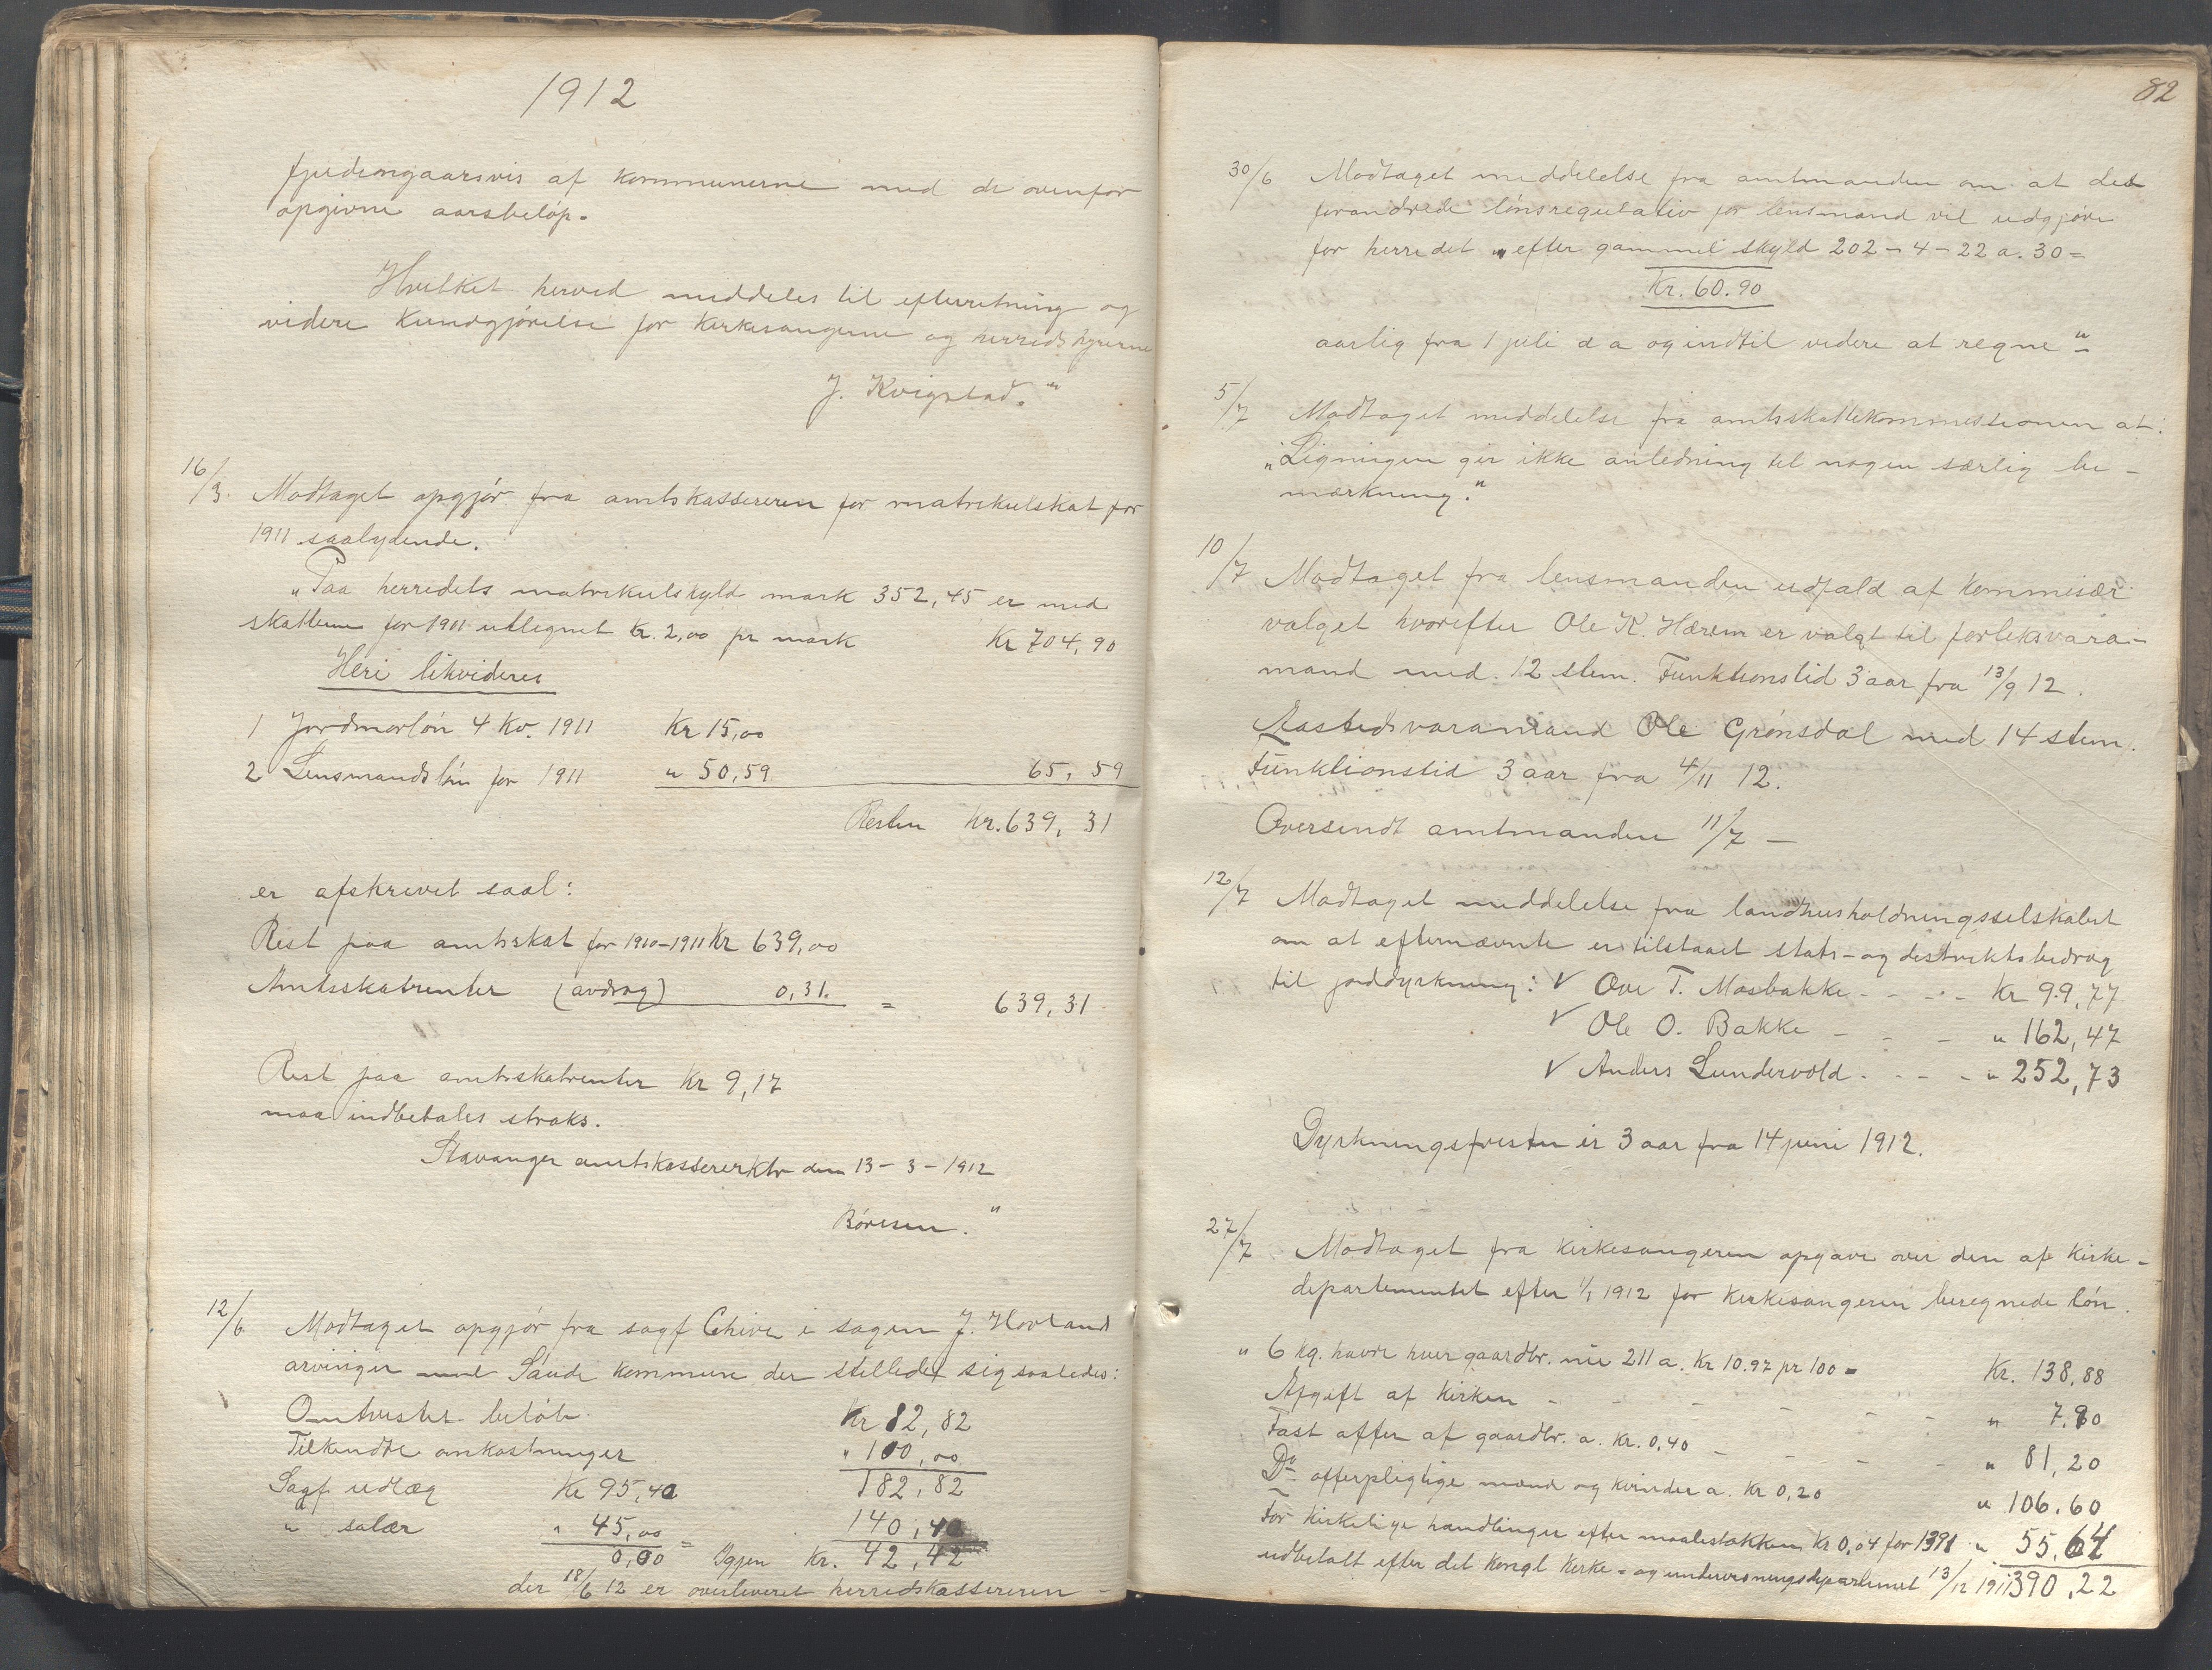 1912
fjerdingaarsvis af kommunerne med de ovenfor
opgivne aarsbeløp.
Hvilket herved meddeles til efterretning og
videre kundgjørelse for kirkesangerne og herredstyrerne
J. Kvigstad."
16/3. Modtaget opgjør fra amtskassereren for matrikulskat for
1911 saalydende.
"Paa herredets matrikulskyld mark 352,45 er med
skatten for 1911 utlignet kr. 2,00 pr mark Kr 704,90
Heri likvideres
1 Jordmorløn 4 Kv. 1911 Kr 15,00
2 Lensmandsløn for 1911 " 50,59 65,59
Resten kr. 639,31
er afskrevet saal:
Rest paa amtsskat for 1910-1911 Kr 639,00
Amtsskatrenter (avdrag) 0,31. = 639,31
Rest paa amtsskatrenter Kr 9,17
maa indbetales straks.
Stavanger amtskassererktr den 13-3-1912
Børesen."
12/6 Modtaget opgjør fra sagf i sagen J. Hovland
arvinger mot Saude kommune der stillede sig saaledes:
Omtvistet beløb Kr 82,82
Tilkendte omkostninger " 100,00
182,82
Sagf. udlæg Kr 95,40
" salær " 45,00 140,40
0,00 = Igjen Kr. 42,42
der 18/6 12 er overleveret herredskassereren -
82
30/6 Modtaget meddelelse fra amtmanden om at det
forandrede lønsregulativ for lensmænd vil udgjøre
for herredet " efter gammel skyld 202-4-22 a. 30 =
Kr. 60.90
aarlig fra 1 juli d a og indtil videre at regne"
5/7 Modtaget meddelelse fra amtsskattekommissionen at:
"Ligningen gir ikke anledning til nogen særlig be-
mærkning."
10/7 Modtaget fra lensmanden udfald af kommisær
valget hvorefter Ole K. Hærem er valgt til forliksvara-
mand med 12 stem. Funktionstid 3 aar fra 13/9 12.
Aastedsvaramand Ole Grønsdal med 14 stem.
Funktionstid 3 aar fra 4/11 12.
Oversendt amtmanden 11/7 -
12/7 Modtaget meddelelse fra landhusholdningsselskabet
om at efternævnte er tilstaaet stats- og distriktsbidrag
til jorddyrkning: √ Ove T. Mosbakke - - - - Kr 99,77
√ Ole O. Bakke - - - " 162,47
√ Anders Lundervold. - - - " 252,73
Dyrkningsfristen er 3 aar fra 14 juni 1912.
27/7 Modtaget fra kirkesangeren opgave over den af kirke-
departementet efter 1/1 1912 for kirkesangeren beregnede løn.
" 6 kg. havre hver gaardbr. nu 211 a. Kr 10.97 pr 100 = Kr. 138,88
Afgift af kirken - - - - - - " 7.90
Fast offer af gaardbr. a. Kr. 0,40 - - - - " 81,20
Do offerpligtige mænd og kvinder a. Kr 0,20 " 106.60
For kirkelige handlinger efter maalestokken Kr 0,04 for 1391 " 55.64
udbetalt efter det kongl kirke- og undervisningsdepartemet 13/12 1911 390,22